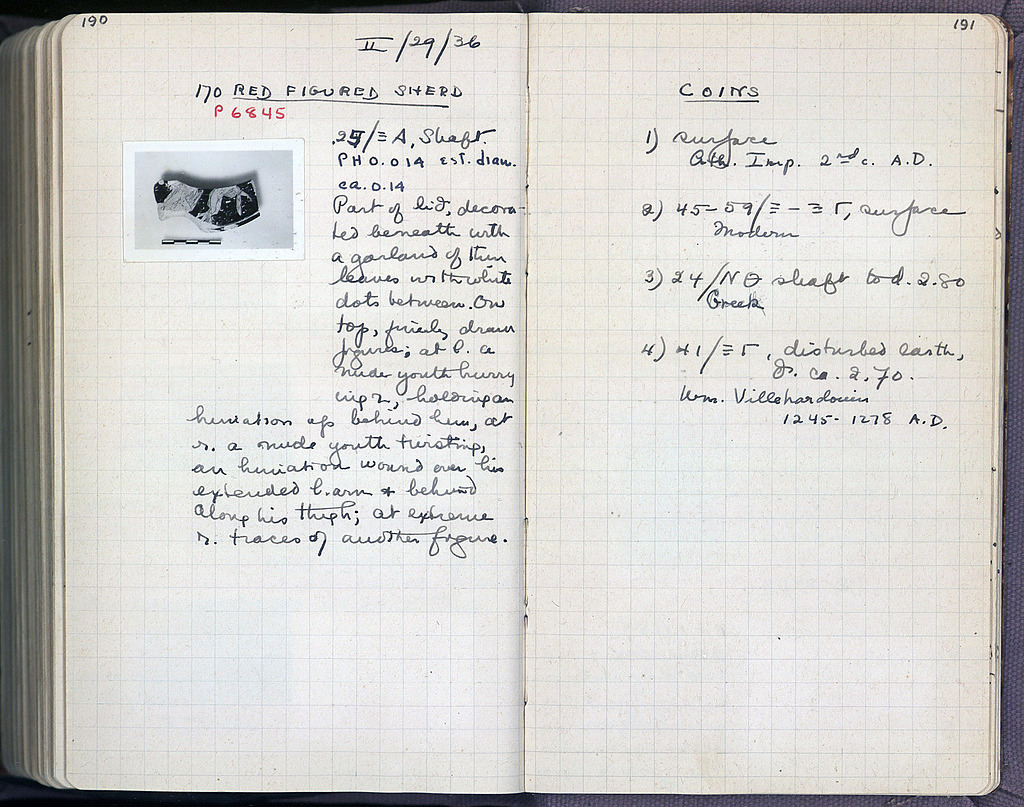 190
II/29/36
170 RED FIGURED SHERD
P 6845
/Ξ A, Shaft.
PH 0.014 est. diam.
ca. 0.14
Part of lid, decora-
ted beneath with
a garland of thin
leaves with white
dots between. On
top, finely drawn
figures; at l. a
nude youth hurry
ing r., holding an
himation up behind him, at
r. a nude youth twisting,
an himation wound over his
extended l. arm & behind
along his thigh; at extreme
r. traces of another figure.
191
COINS
1) surface
Ath. Imp. 2nd c. A.D.
2) 45-59/Ξ - Ξ Γ, surface
Modern
3) 24/ΝΘ shaft to d. 2.80
Greek
4) 41/Ξ Γ, disturbed earth,
ca. 2.70.
Wm. Villehardouin
1245-1278 A.D.